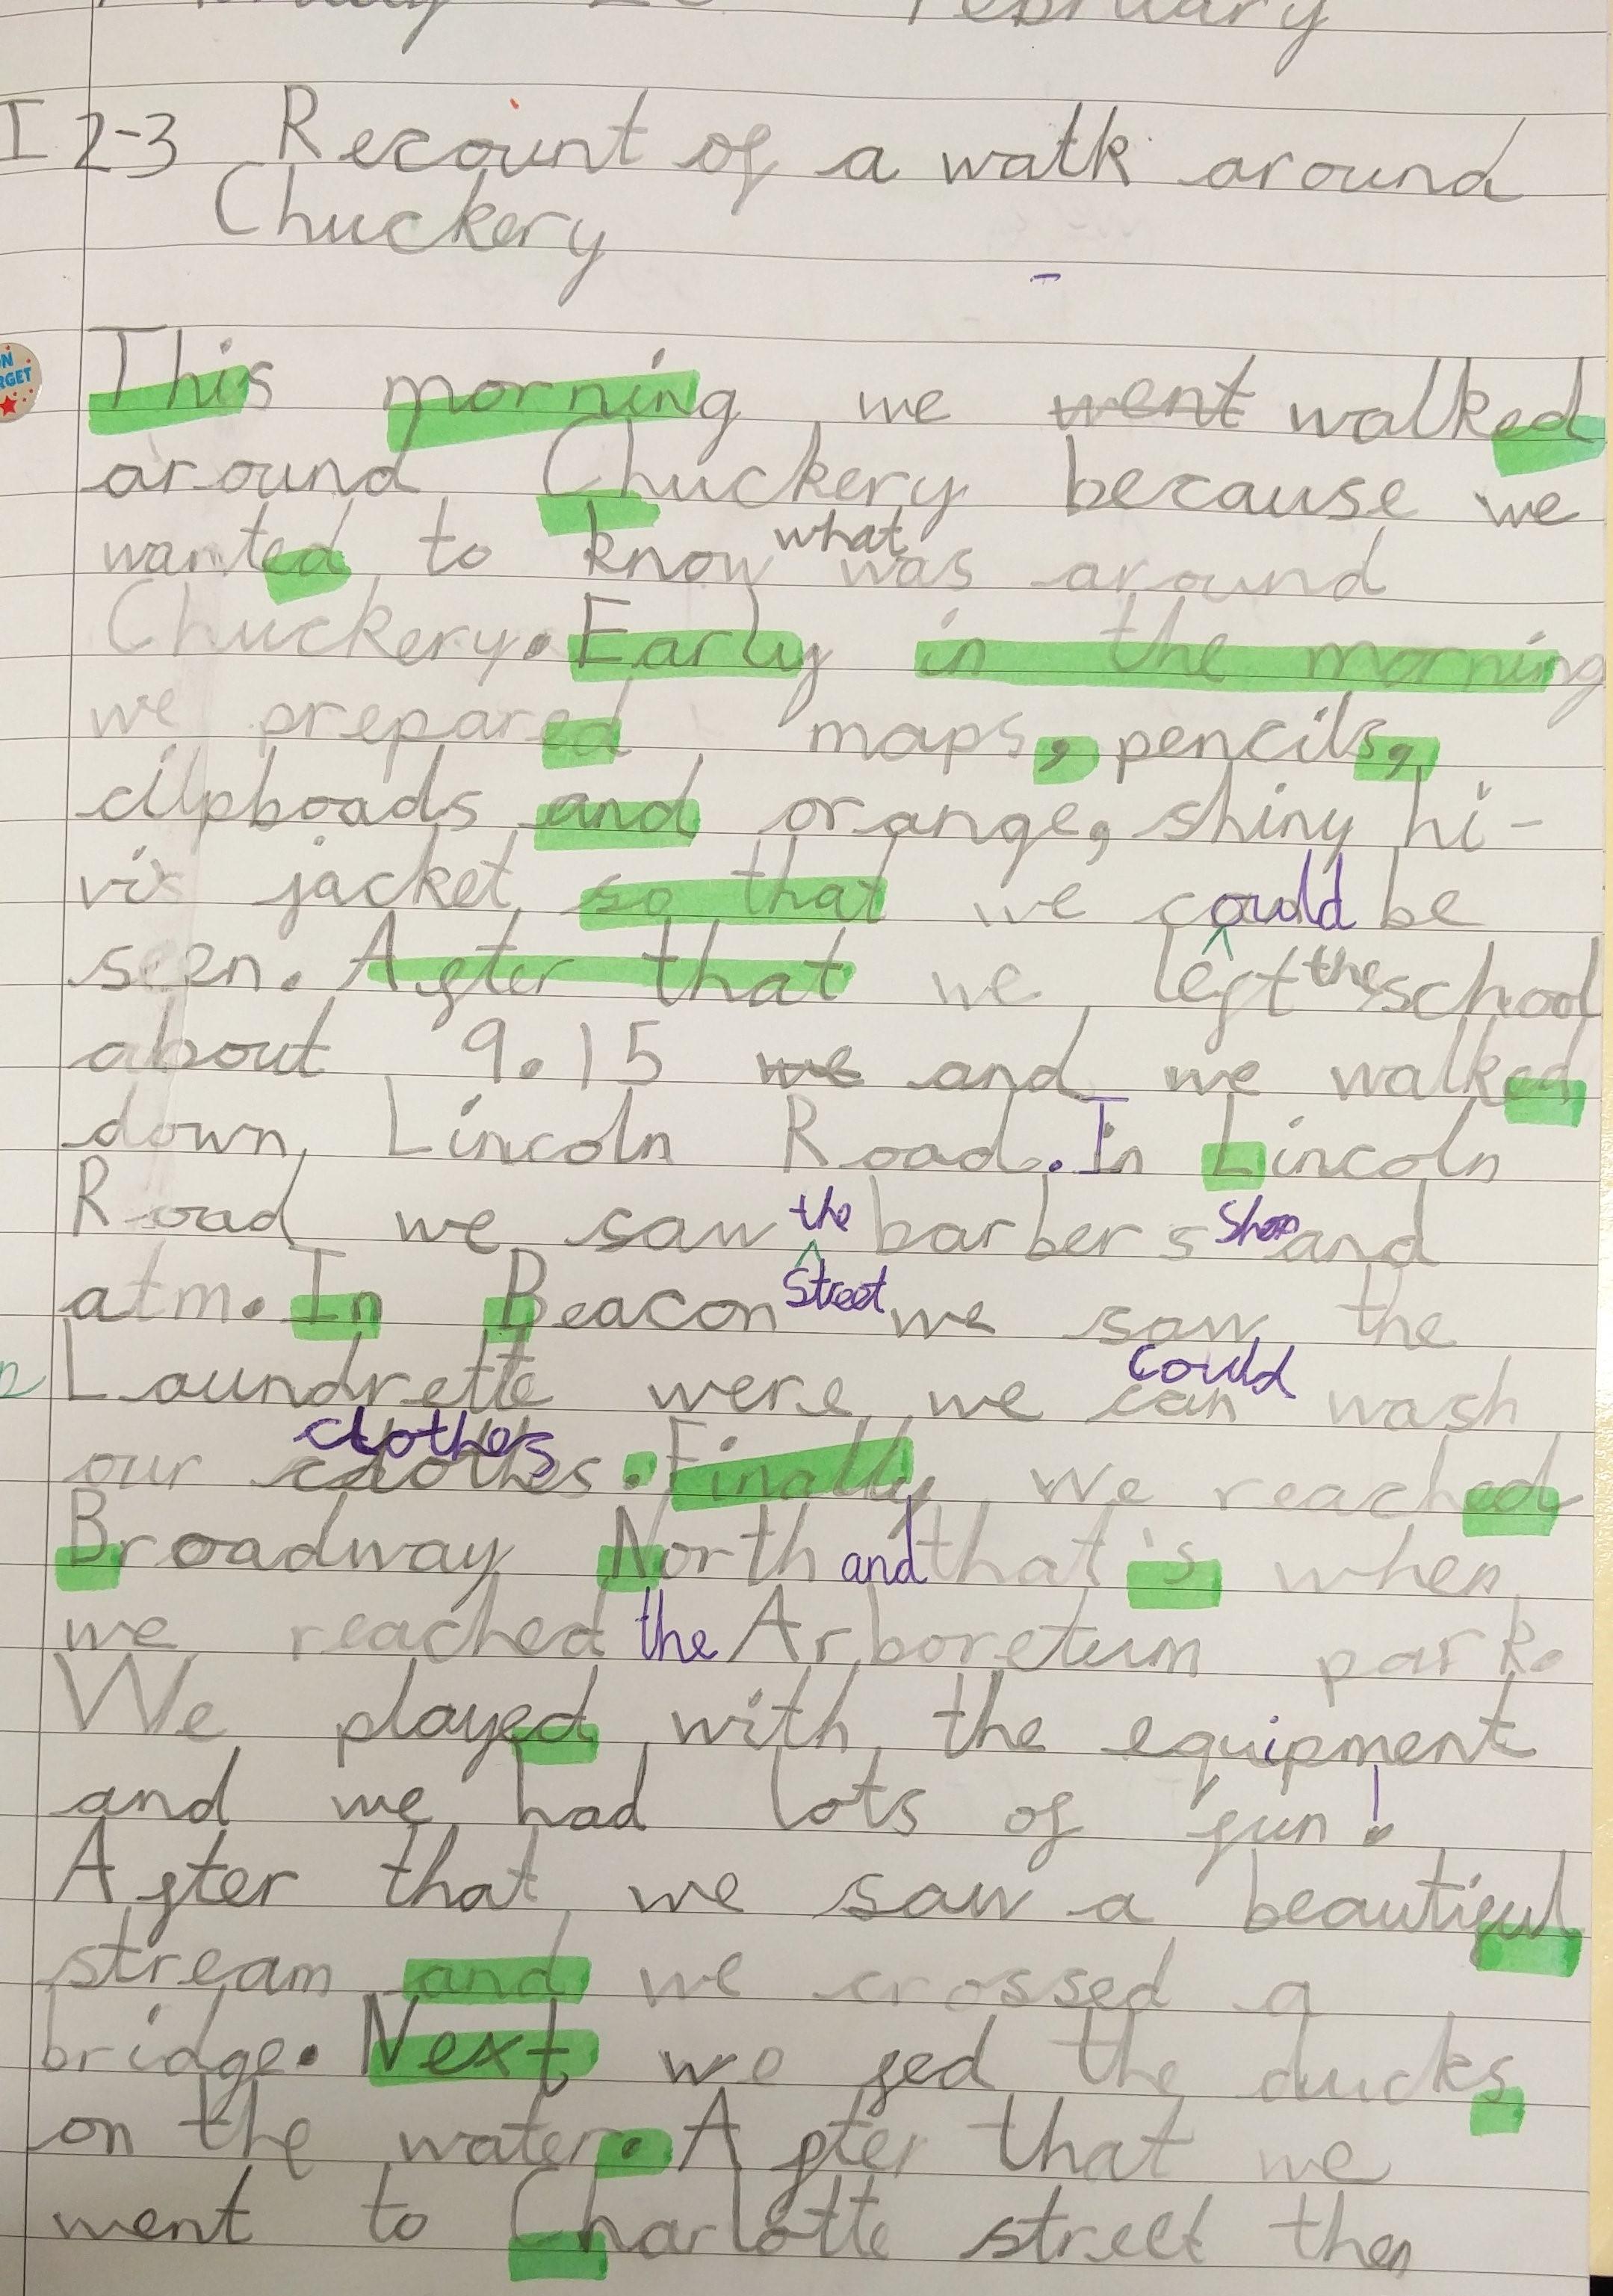 February
I 2-3 Recount of a walk around
Chuckery
This morning we went walked
around Chuckery because we
wanted to know what was around
Chuckery. Early in the morning
we prepared maps, pencils,
clipboads and orange, shiny hi-
vis jacket so that we could be
seen. After that we left the school
about 9.15 we and we walked
down Lincoln Road. In Lincoln
Road we saw the barbers shop and
atm. In Beacon Street we saw the
Laundrette were we can could wash
our clothes. Finally we reached
Broadway North and that's when
we reached the Arboretum park.
We played with the equipment
and we had lots of fun!
After that we saw a beautiful
stream and we crossed a
bridge. Next we fed the ducks
on the water. After that we
went to Charlotte street then